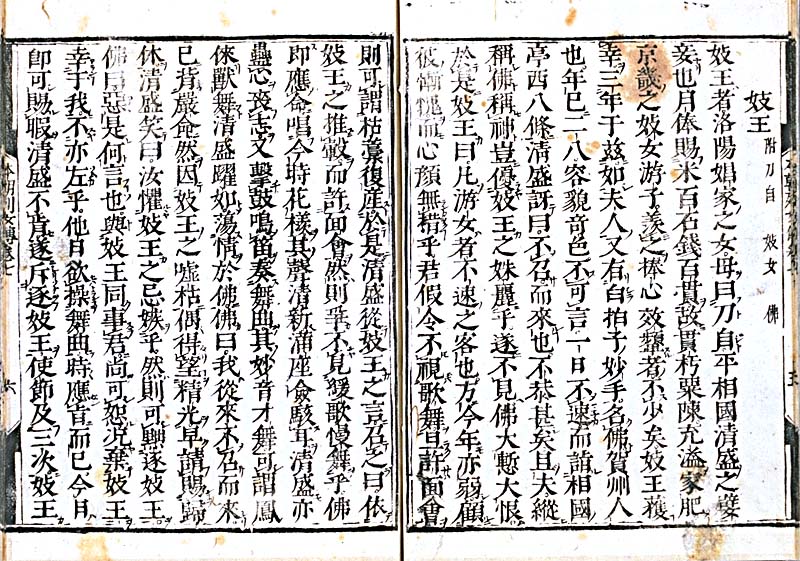 妓王 附刀自 妓女 佛
妓王者洛陽娼家之女母曰刀自平相國清盛之嬖
妾也月俸賜米百石錢百貫故貫朽粟陳充溢家肥
京畿之妓女游子羨之捧心效顰者不少矣妓王獲
幸三年于茲如夫人又有白拍子妙手名佛賀州人
也年已二八容貌音色不可言一日不速而詣相國
亭西八條清盛訝曰不召而來也不恭甚矣且夫縱
稱佛稱神豈優妓王之妹麗乎遂不見佛大慙大恨
於是妓王曰凡游女者不速之客也方今年亦弱顧
彼慚愧而心顏無措乎君假令不視歌舞且許面會
則可謂枯藁復產於是清盛從妓王之言召之曰依
妓王之推轂而許面會然則爭不見緩歌慢舞乎佛
即應命唱今時花樣其聲清新滿座僉駭耳清盛亦
蠱心喪志又擊鼓鳴笛奏舞曲其妙音才舞可謂鳳
倈獸舞清盛躍如蕩情於佛佛曰我從來不召而來
已背嚴命然因妓王之噓枯偶得望精光早請賜歸
休清盛笑曰汝懼妓王之忌嫉乎然則可黜逐妓王
佛曰惡是何言也與妓王同事君尚可恕況棄妓王
幸于我不亦左乎他日欲操舞曲時應旨而已今日
卽可賜暇清盛不肯遂斥逐妓王使節及三次妓王
本朝列女傳卷七 六